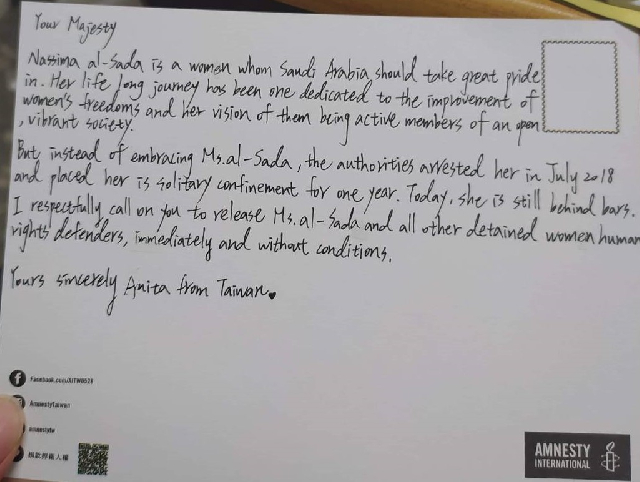 Your Majesty
Nassima al-Sada is a women whom Saudi Arabia should take great pride
in. Her life long journey has been one dedicated to the improvement of
women's freedoms and her vision of them being active members of an open
, vibrant society.
But instead of embracing Ms. al-Sada, the authorities arrested her in July 2018
and placed her is solitary confinement for one year. Today, she is still behind bars.
I respectfully call on you to release Ms. al-Sada and all other detained women human
rights defenders, immediately and without conditions.
Yours sincerely Anita from Taiwan.
AmnestyTaiwan
amnestytw
AMNESTY
INTERNATIONAL